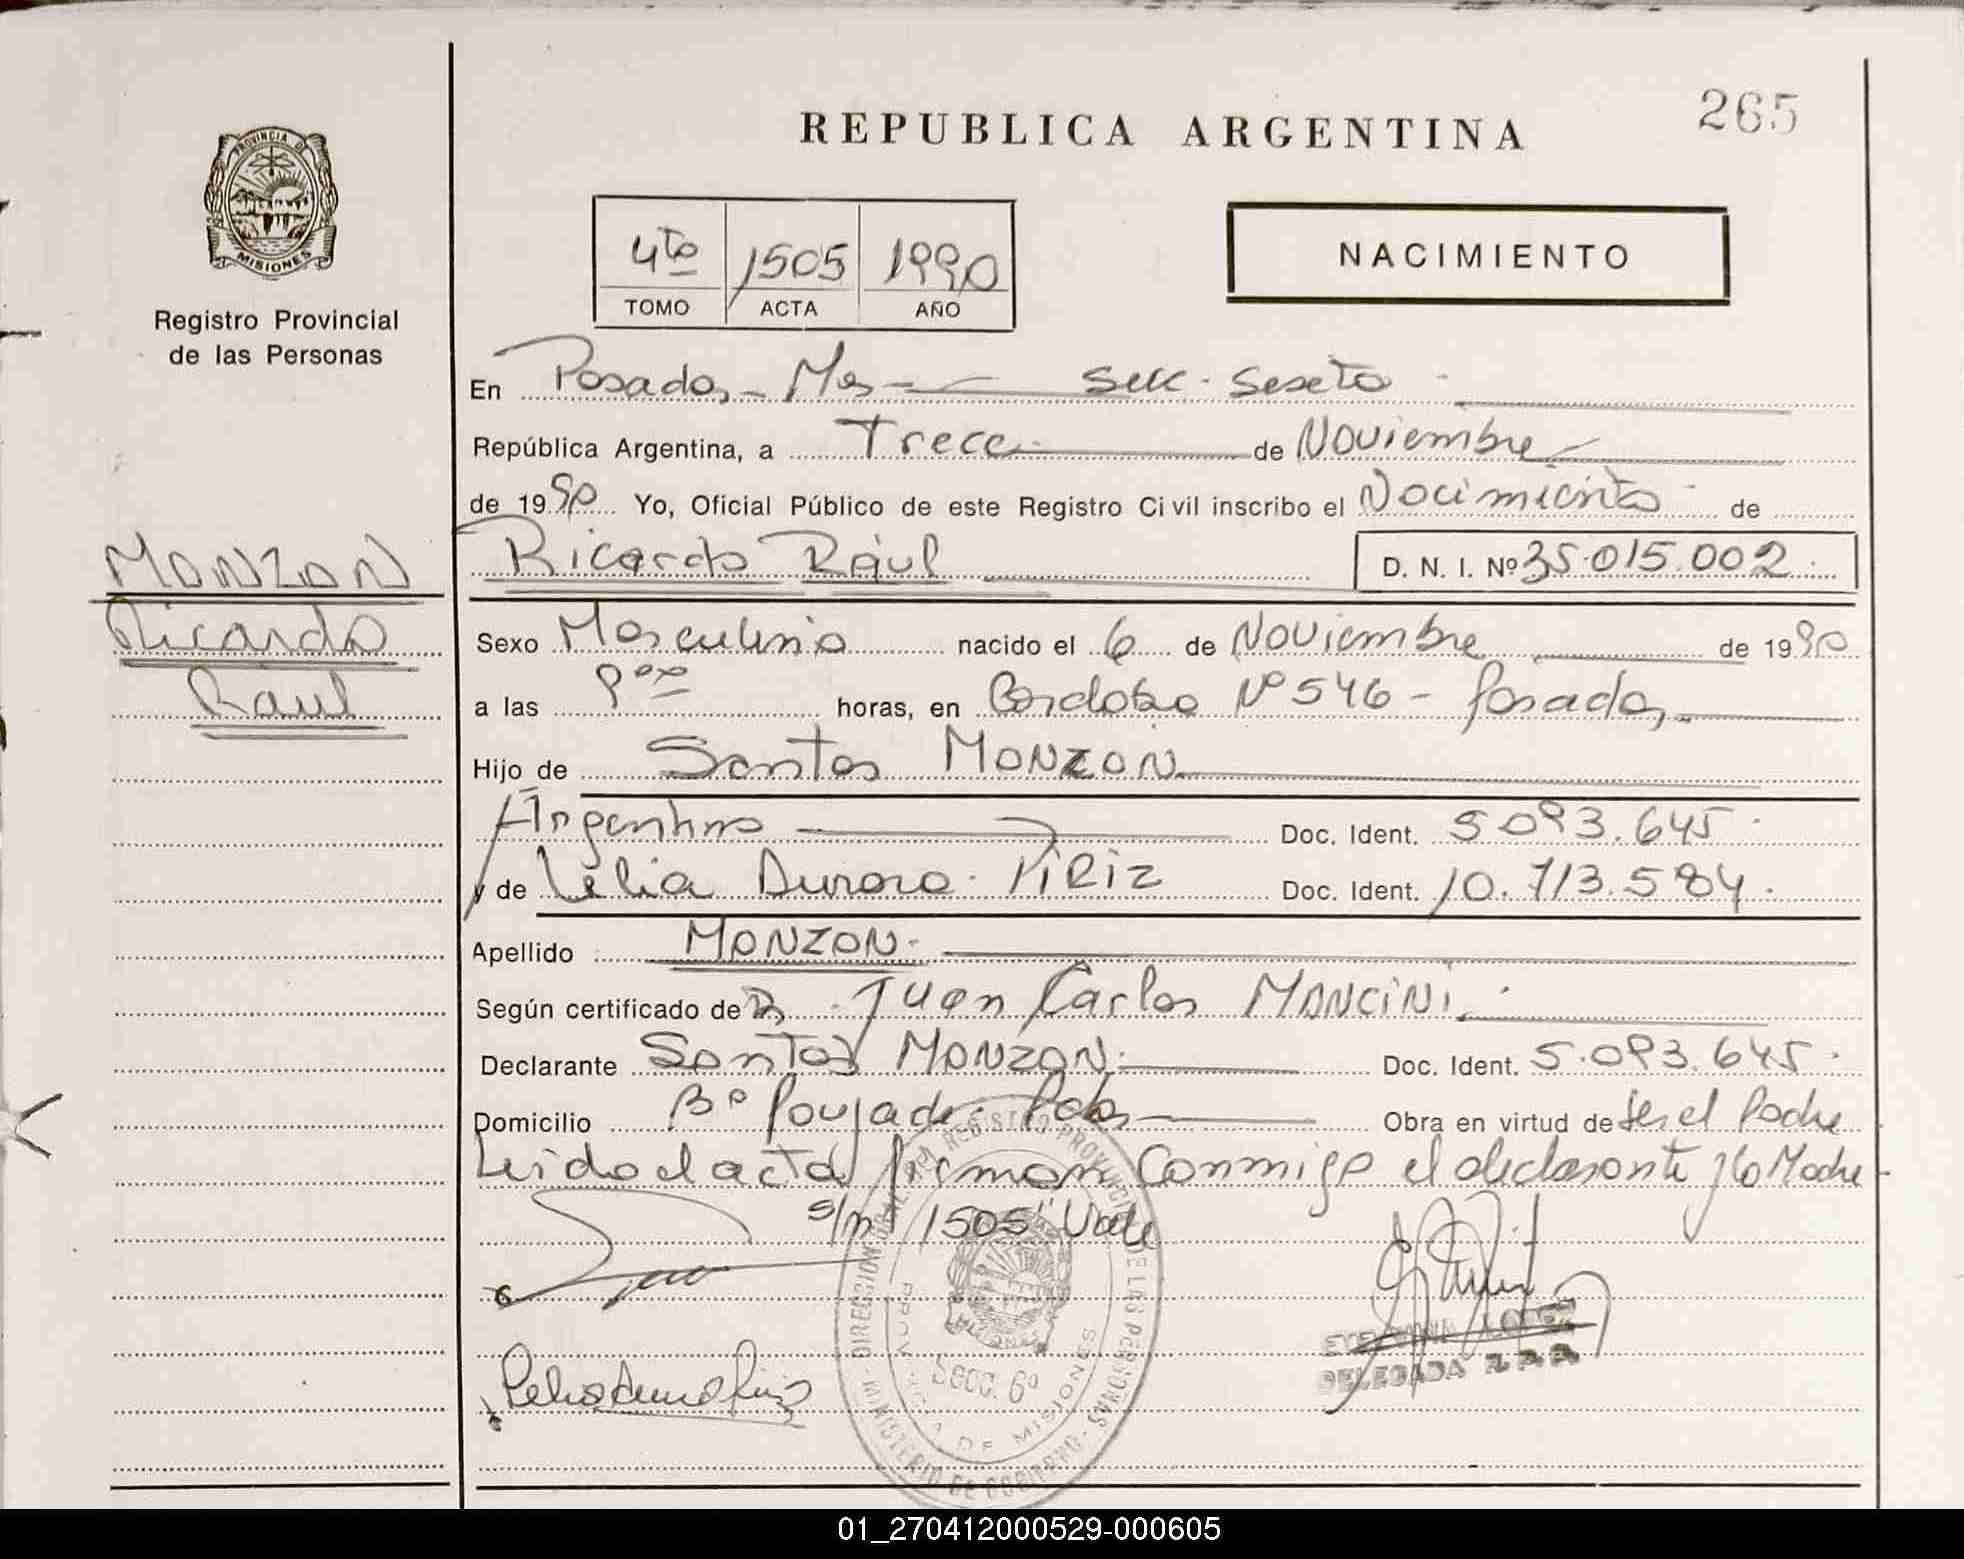 265
REPUBLICA ARGENTINA
PROVINCIA DE
MISIONES
Registro Provincial
de las Personas
4to 1505 1990
TOMO ACTA AÑO
NACIMIENTO
En Posadas - Mes - Secc. Sexto
República Argentina, a Trece de Noviembre
de 1990 Yo, Oficial Público de este Registro Civil inscribo el Nacimiento de
Ricardo Raúl D. N. I. Nº 35.015.002
MONZON
Ricardo
Raul
Sexo Masculino nacido el 6 de Noviembre de 1990
a las horas, en Cordoba Nº 546 - Posadas
Hijo de Santos MONZON
Argentino Doc. Ident. 5.093.645
y de Lelia Aurora PIRIZ Doc. Ident. 10.713.584
Apellido MONZON
Según certificado de Dr. Juan Carlos MANCINI
Declarante Santos MONZON Doc. Ident. 5.093.645
Domicilio Bº Poujade - Pdas Obra en virtud de Ser el Padre
Leido el acta firman conmigo el declarante y la Madre
s/n 1505 Vale
DIRECCION GRAL. DEL REGISTRO PROVINCIAL DE LAS PERSONAS
MINISTERIO DE GOBIERNO
SECC. 6º
PROVINCIA DE MISIONES
LOPEZ
DELEGADA
01_270412000529-000605